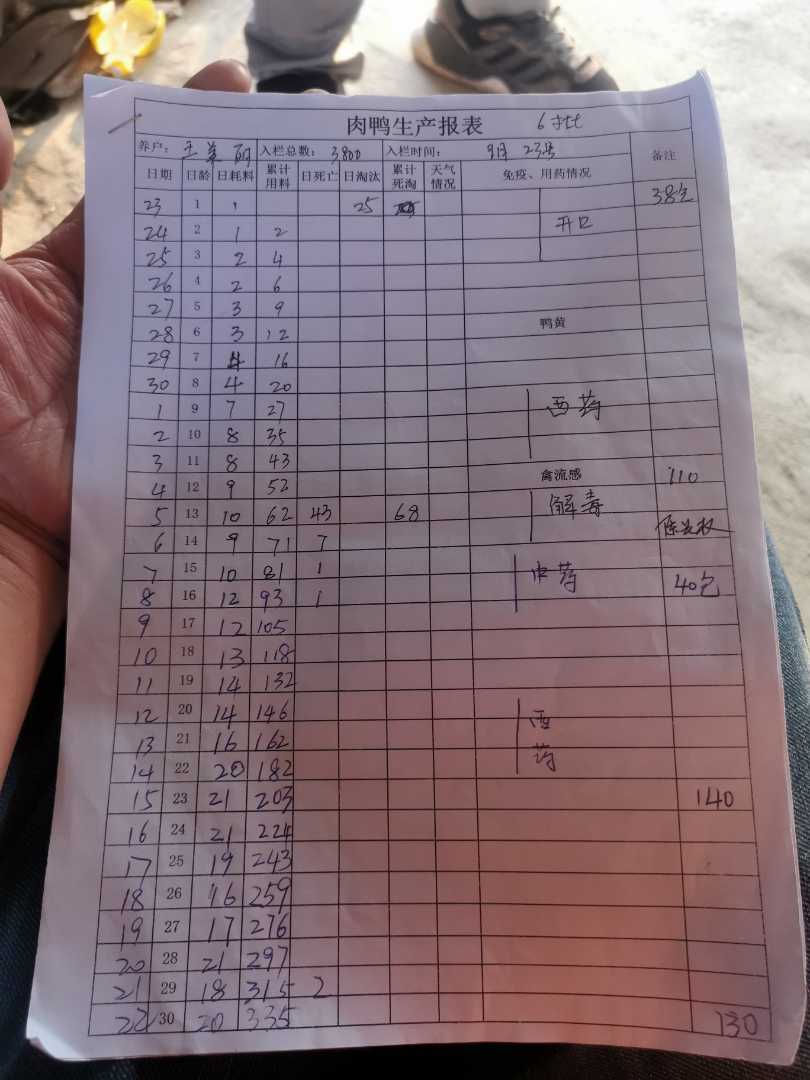 肉鸭生产报表 6批
养户： 入栏总数： 3800 入栏时间： 9月 23号 备注
日期 日龄 日耗料 累计用料 日死亡 日淘汰 累计死淘 天气情况 免疫、用药情况
23 1 1 25 38包
24 2 1 2 开口
25 3 2 4
26 4 2 6
27 5 3 9
28 6 3 12 鸭黄
29 7 4 16
30 8 4 20
1 9 7 27 西药
2 10 8 35
3 11 8 43
4 12 9 52 禽流感 110
5 13 10 62 43 68 解毒
6 14 9 71 7
7 15 10 81 1 中药
8 16 12 93 1 40包
9 17 12 105
10 18 13 118
11 19 14 132
12 20 14 146 西
13 21 16 162 药
14 22 20 182
15 23 21 203 140
16 24 21 224
17 25 19 243
18 26 16 259
19 27 17 276
20 28 21 297
21 29 18 315 2
22 30 20 335 130